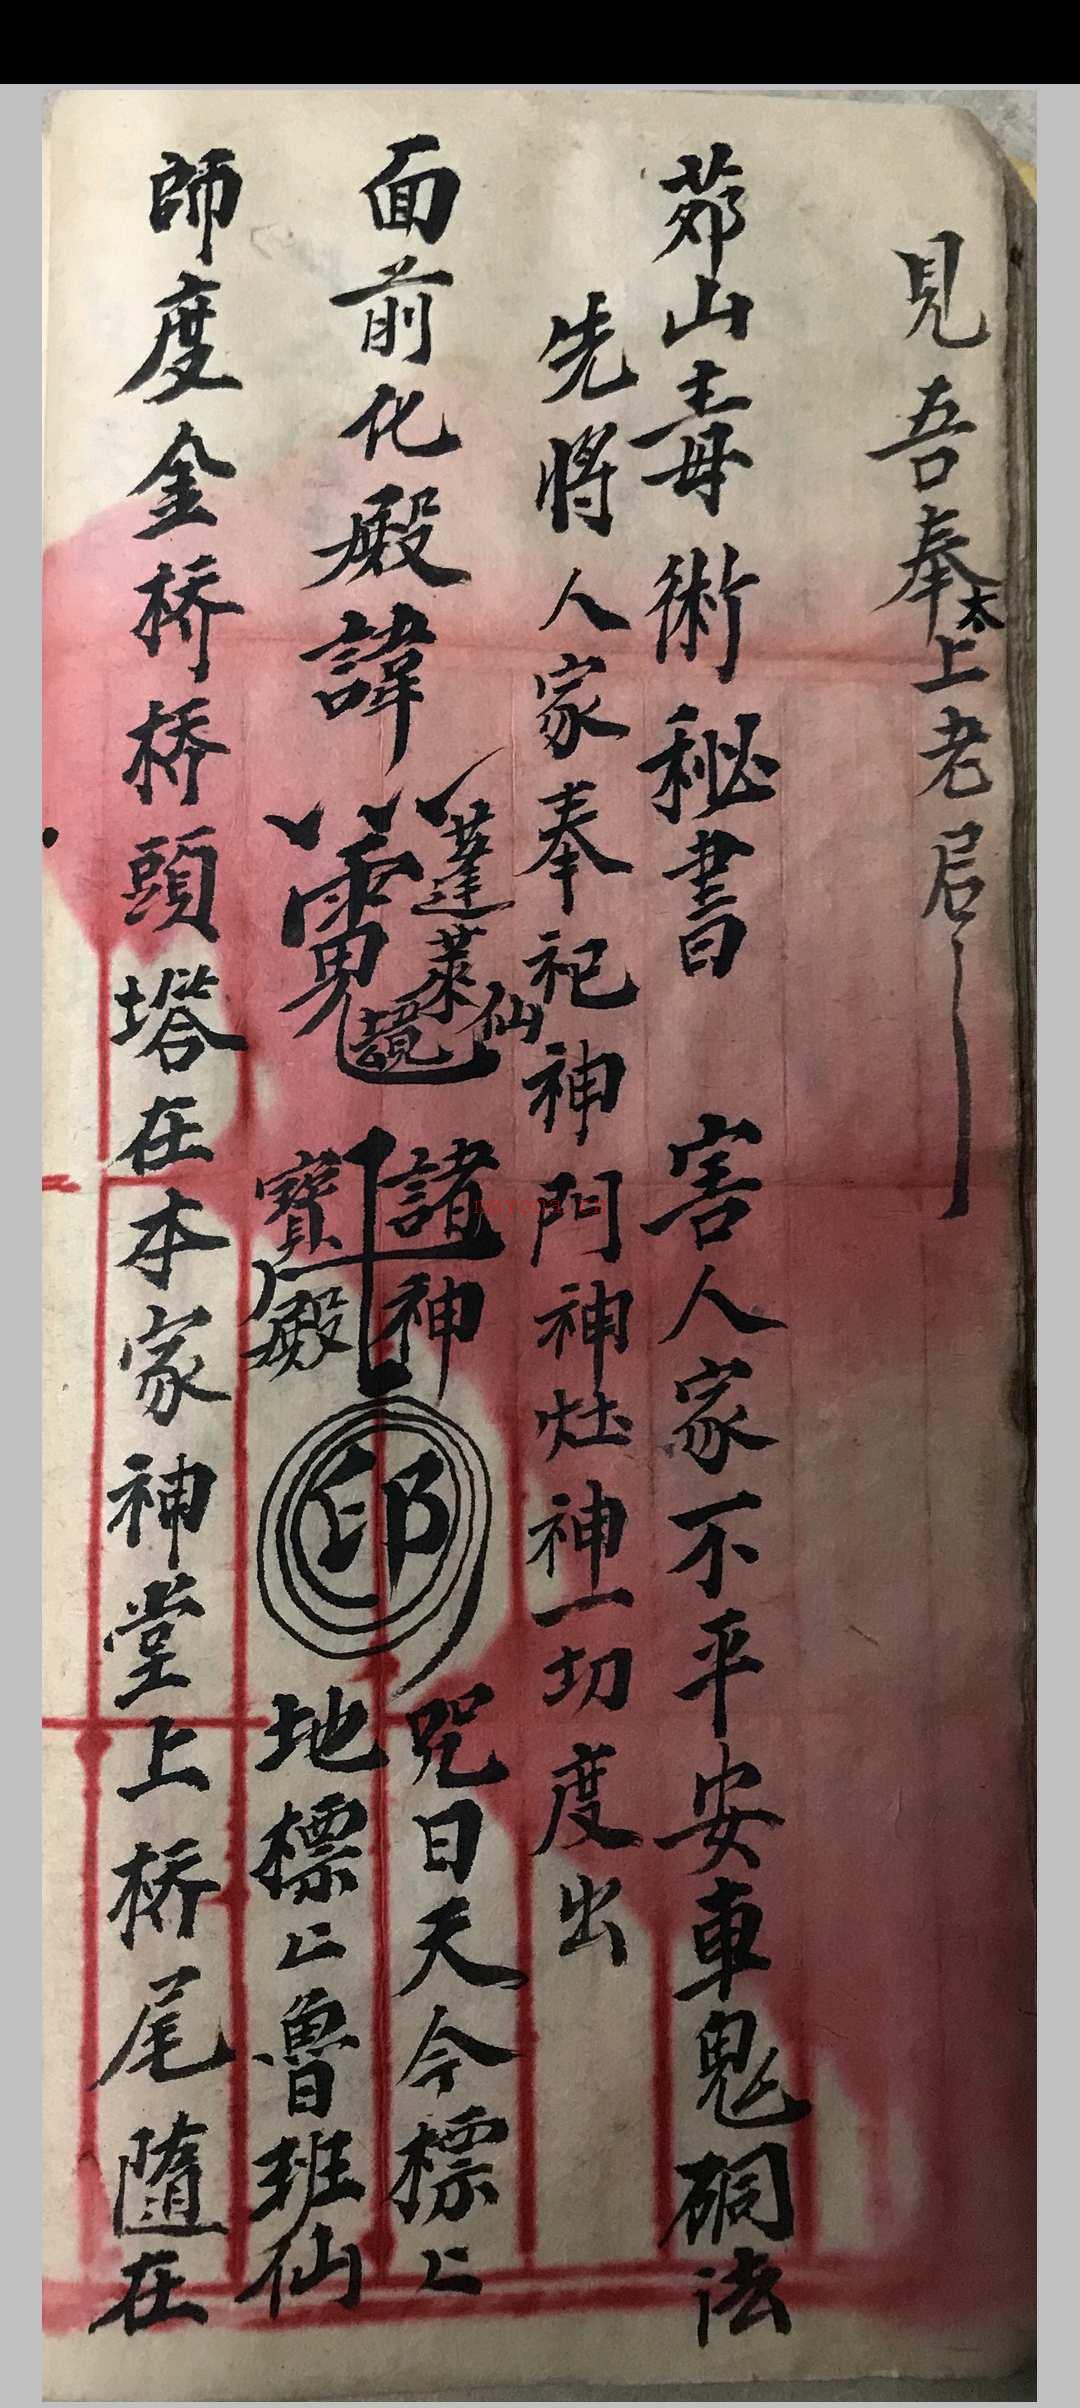 見吾奉太上老启
茆山毒術秘書 害人家不平安車鬼硐法
先將人家奉祀神門神灶神一切度出
面前化殿諱
蓬萊仙境
諸神
寶殿
印
咒曰天今標上
地標上魯班仙
師度金桥桥頭塔在本家神堂上桥尾隨在